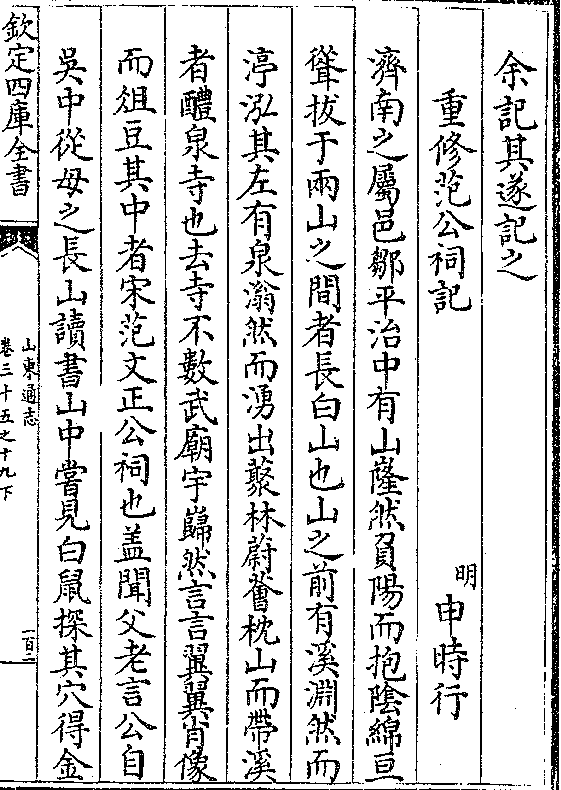 余記其遂記之
重修范公祠記
明 申時行
濟南之屬邑鄒平治中有山㠉然負陽而抱陰綿亘
聳拔于兩山之間者長白山也山之前有溪淵然而
渟泓其左有泉滃然而湧出藂林蔚薈枕山而帶溪
者醴泉寺也去寺不數武廟宇巋然言言翼翼肖像
而俎豆其中者宋范文正公祠也盖聞父老言公自
吳中從母之長山讀書山中嘗見白鼠探其穴得金
欽定四庫全書
山東通志
卷三十五之十九下
一百二